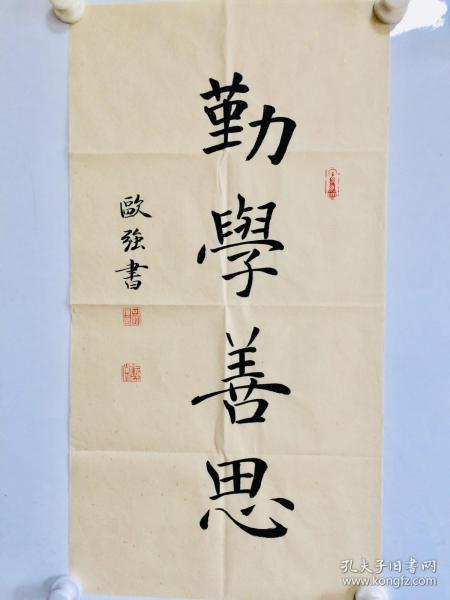 勤學善思
歐強書
孔夫子旧书网
www.kongfz.com